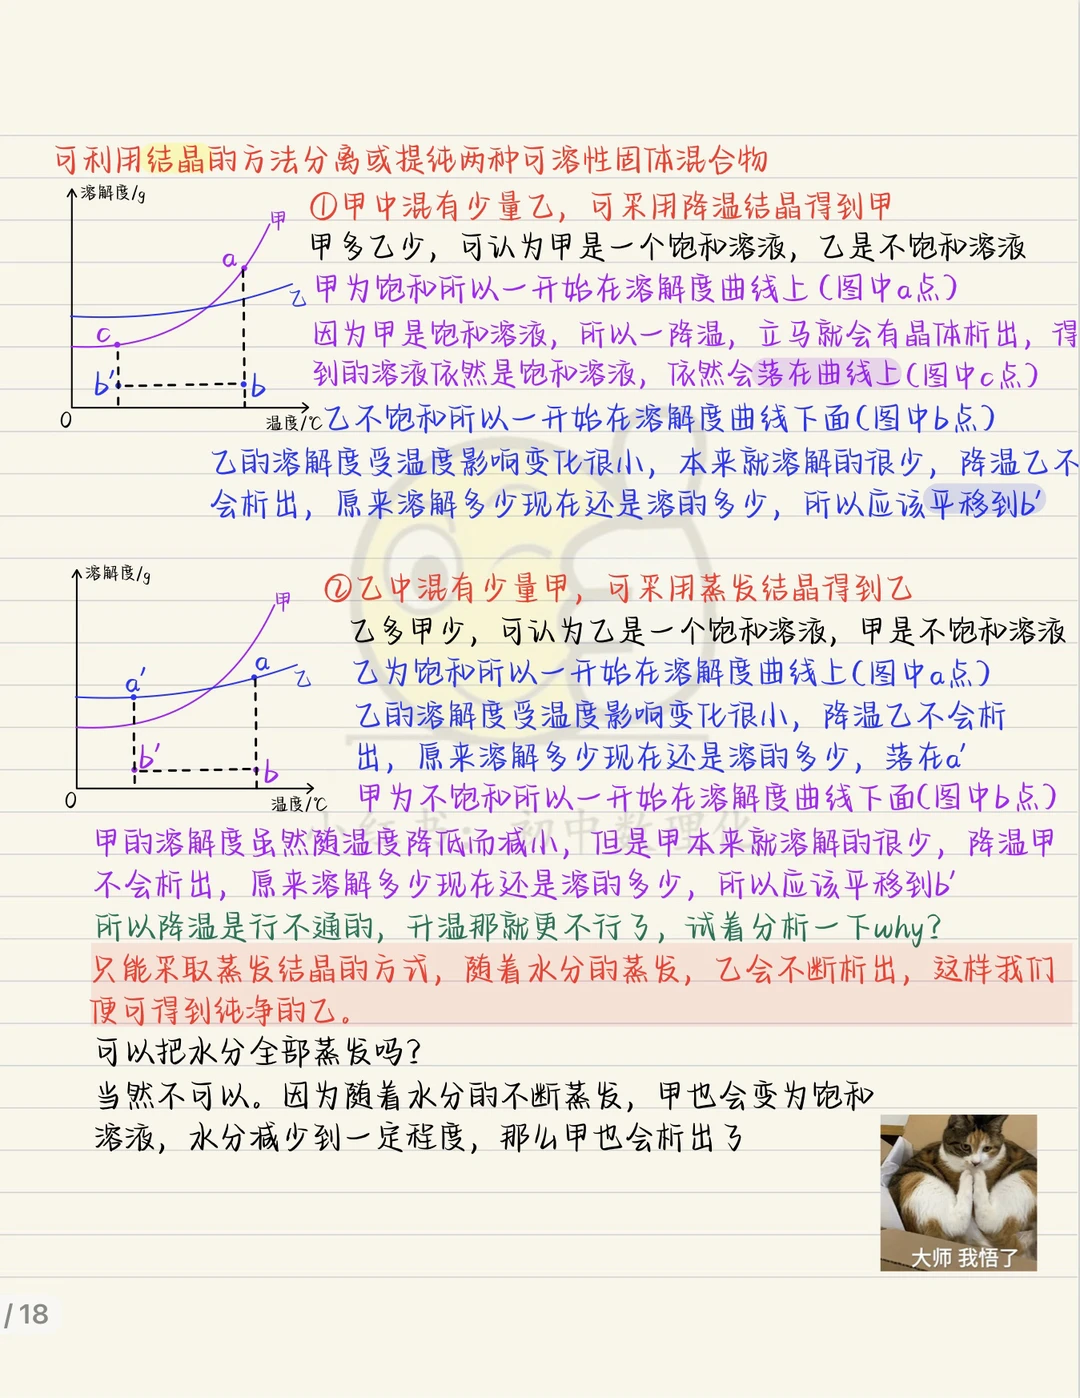 可利用结晶的方法分离或提纯两种可溶性固体混合物
溶解度/g
甲
a
乙
c
b′
b
0
温度/℃
①甲中混有少量乙，可采用降温结晶得到甲
甲多乙少，可认为甲是一个饱和溶液，乙是不饱和溶液
甲为饱和所以一开始在溶解度曲线上(图中a点)
因为甲是饱和溶液，所以一降温，立马就会有晶体析出，得
到的溶液依然是饱和溶液，依然会落在曲线上(图中c点)
乙不饱和所以一开始在溶解度曲线下面(图中b点)
乙的溶解度受温度影响变化很小，本来就溶解的很少，降温乙不
会析出，原来溶解多少现在还是溶的多少，所以应该平移到b′
溶解度/g
甲
a
乙
a′
b′
b
0
温度/℃
②乙中混有少量甲，可采用蒸发结晶得到乙
乙多甲少，可认为乙是一个饱和溶液，甲是不饱和溶液
乙为饱和所以一开始在溶解度曲线上(图中a点)
乙的溶解度受温度影响变化很小，降温乙不会析
出，原来溶解多少现在还是溶的多少，落在a′
甲为不饱和所以一开始在溶解度曲线下面(图中b点)
小红书：初中数理化
甲的溶解度虽然随温度降低而减小，但是甲本来就溶解的很少，降温甲
不会析出，原来溶解多少现在还是溶的多少，所以应该平移到b′
所以降温是行不通的，升温那就更不行了，试着分析一下why?
只能采取蒸发结晶的方式，随着水分的蒸发，乙会不断析出，这样我们
便可得到纯净的乙。
可以把水分全部蒸发吗?
当然不可以。因为随着水分的不断蒸发，甲也会变为饱和
溶液，水分减少到一定程度，那么甲也会析出了
大师 我悟了
/ 18